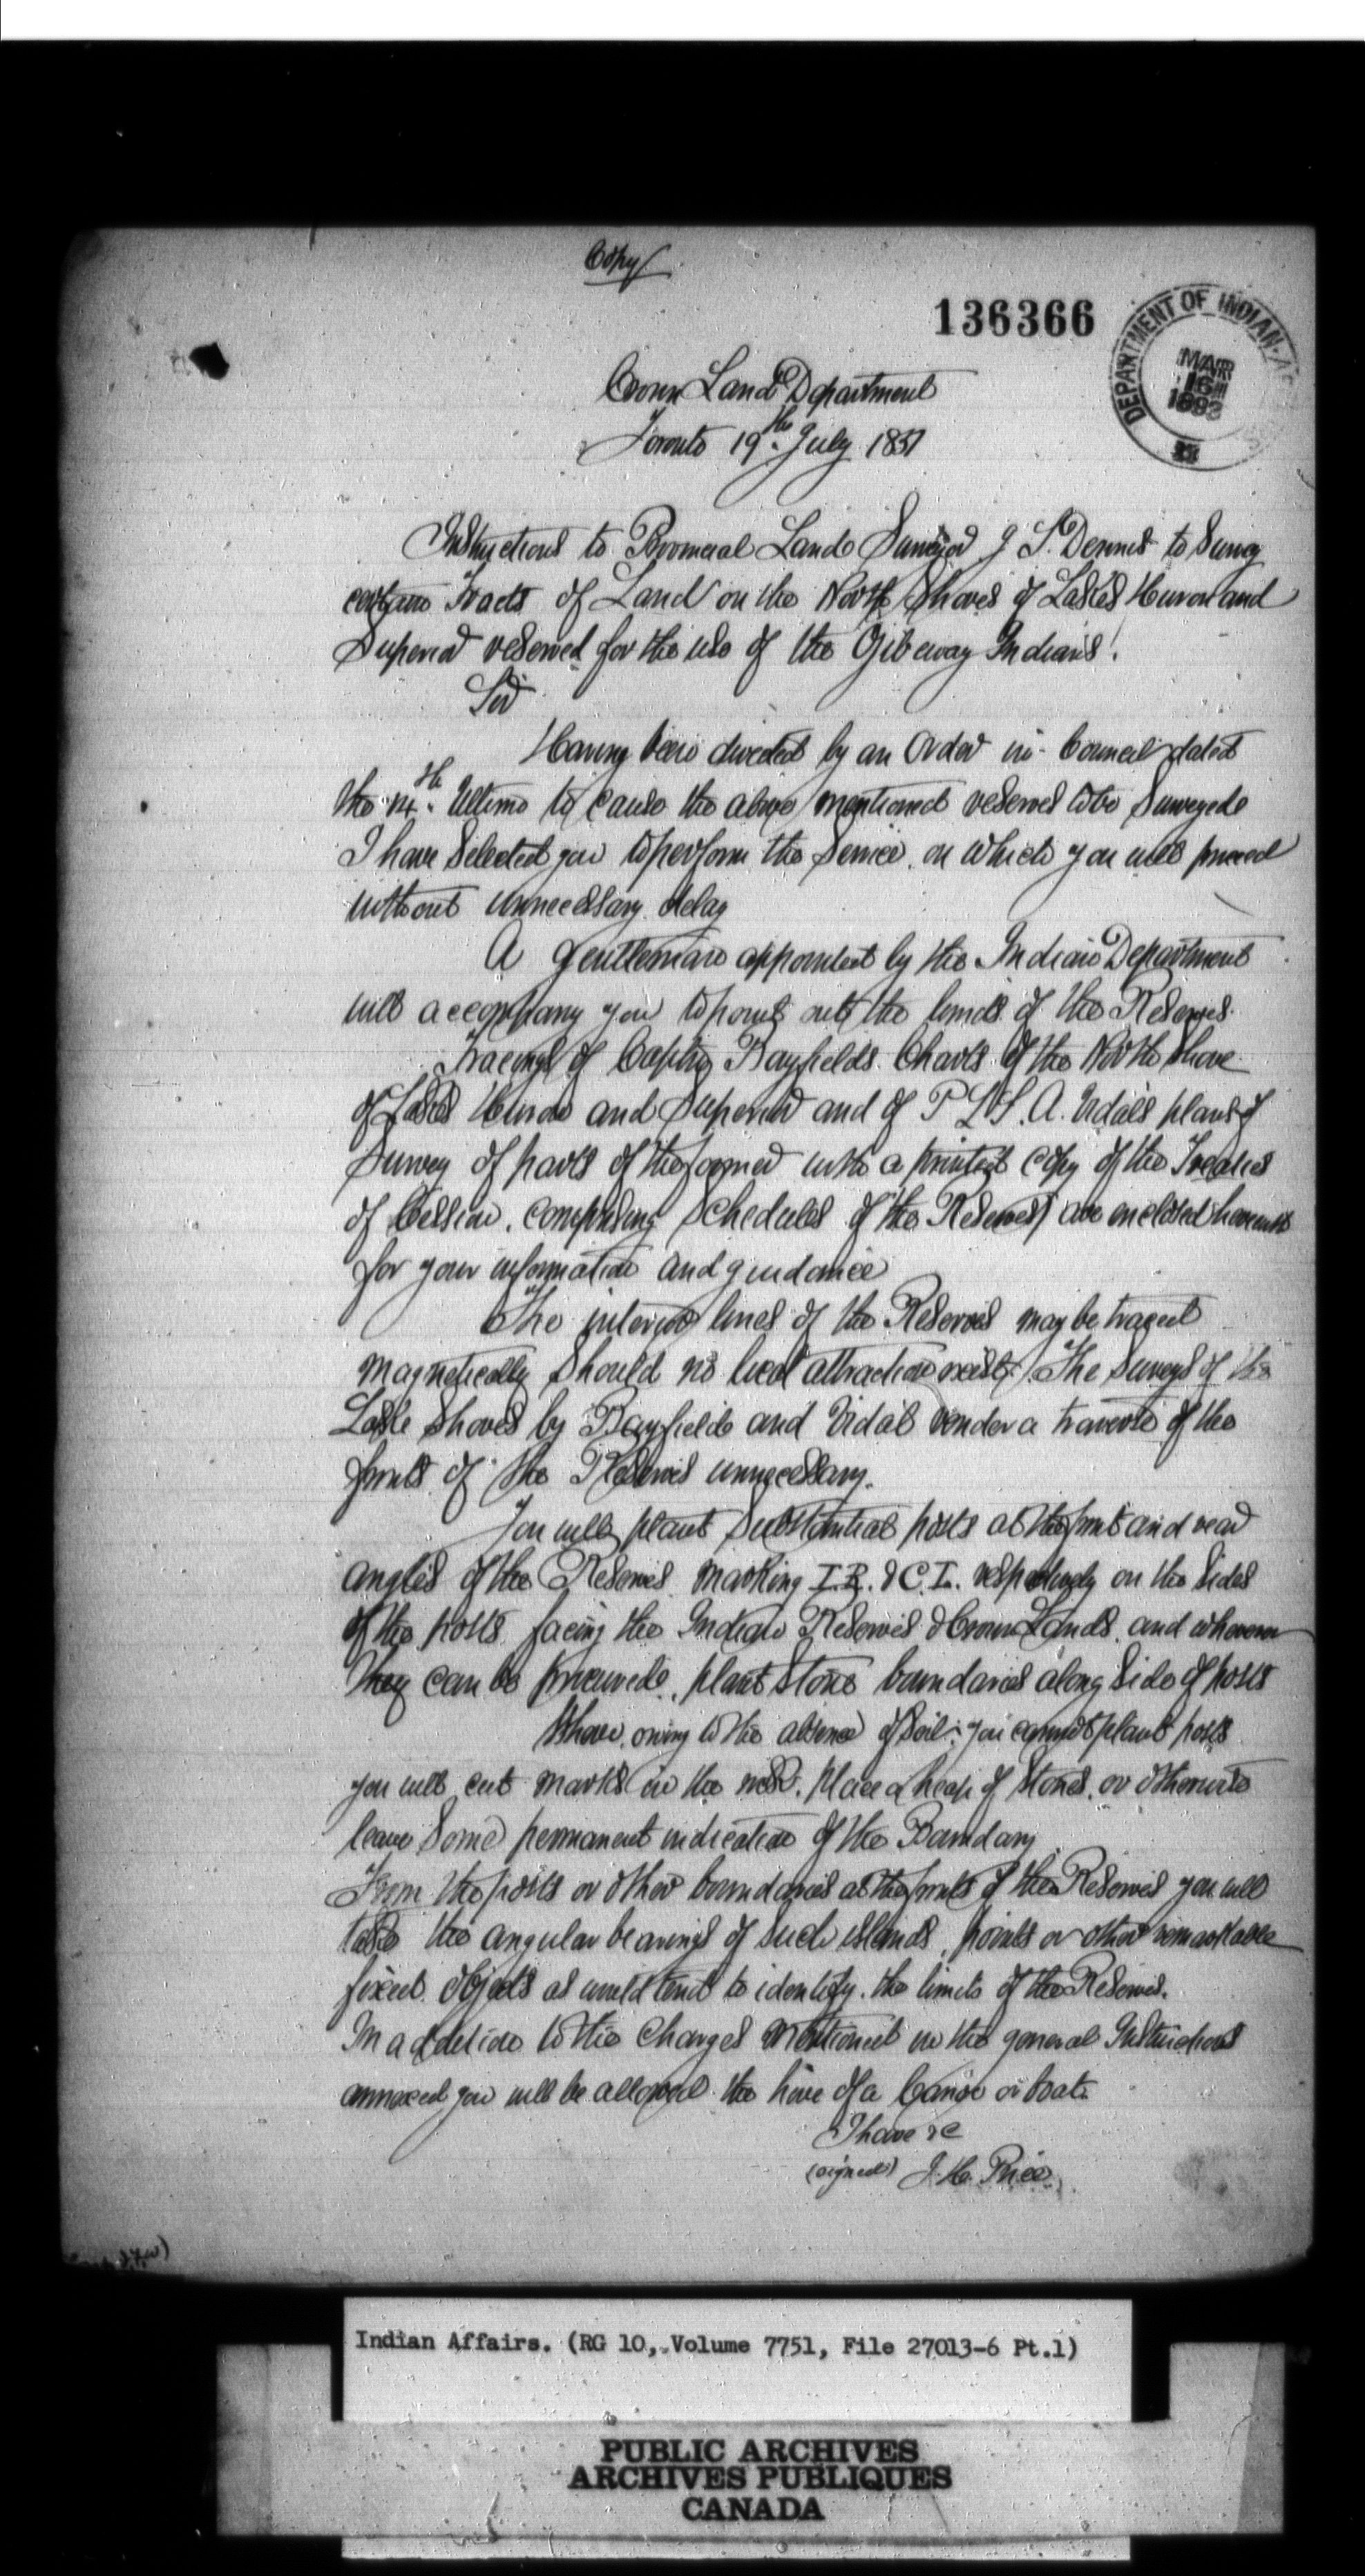 Copy
136366
DEPARTMENT OF INDIAN
MAR
16
1893
Crown Land Department
Toronto 19th July 1851
Instructions to Provincial Land Surveyor J S. Dennis to Survey
certain Tracts of Land on the North Shores of Lakes Huron and
Superior reserved for the use of the Ojibeway Indians.
Sir
Having been directed by an Order in Council dated
the 14th Ultimo to cause the above mentioned reserves to be Surveyed
I have Selected you to perform the Service, on which you will proceed
without unnecessary delay
A gentleman appointed by the Indian Department
will accompany you to point out the limits of the Reserves.
Tracings of Captn Bayfields Charts of the North Shore
of Lakes Huron and Superior and of P L S. A. Vidals plans of
Survey of parts of the former with a printed copy of the Treaties
of Cession, comprising Schedules of the Reserves, are enclosed herewith
for your information and guidance
The interior lines of the Reserves may be traced
magnetically should no local attraction exist. The Surveys of the
Lake Shores by Bayfield and Vidal render a traverse of the
fronts of the Reserves unnecessary.
You will plant Substantial posts at the front and rear
angles of the Reserves marking I.R. & C.L. respectively on the sides
of the posts facing the Indian Reserves & Crown Lands, and wherever
they can be procured, plant Stone boundaries along Side of posts
Where, owing to the absence of Soil, you cannot plant posts
you will cut marks in the rock, place a heap of Stones, or otherwise
leave Some permanent indication of the Boundary
From the posts or other boundaries at the fronts of the Reserves you will
take the angular bearings of such islands, points or other remarkable
fixed objects as would tend to identify the limits of the Reserves.
In addition to the Charges mentioned in the general Instructions
annexed you will be allowed the hire of a Canoe or boat.
I have &c
(signed) J. H. Price
Indian Affairs. (RG 10, Volume 7751, File 27013-6 Pt.1)
PUBLIC ARCHIVES
ARCHIVES PUBLIQUES
CANADA